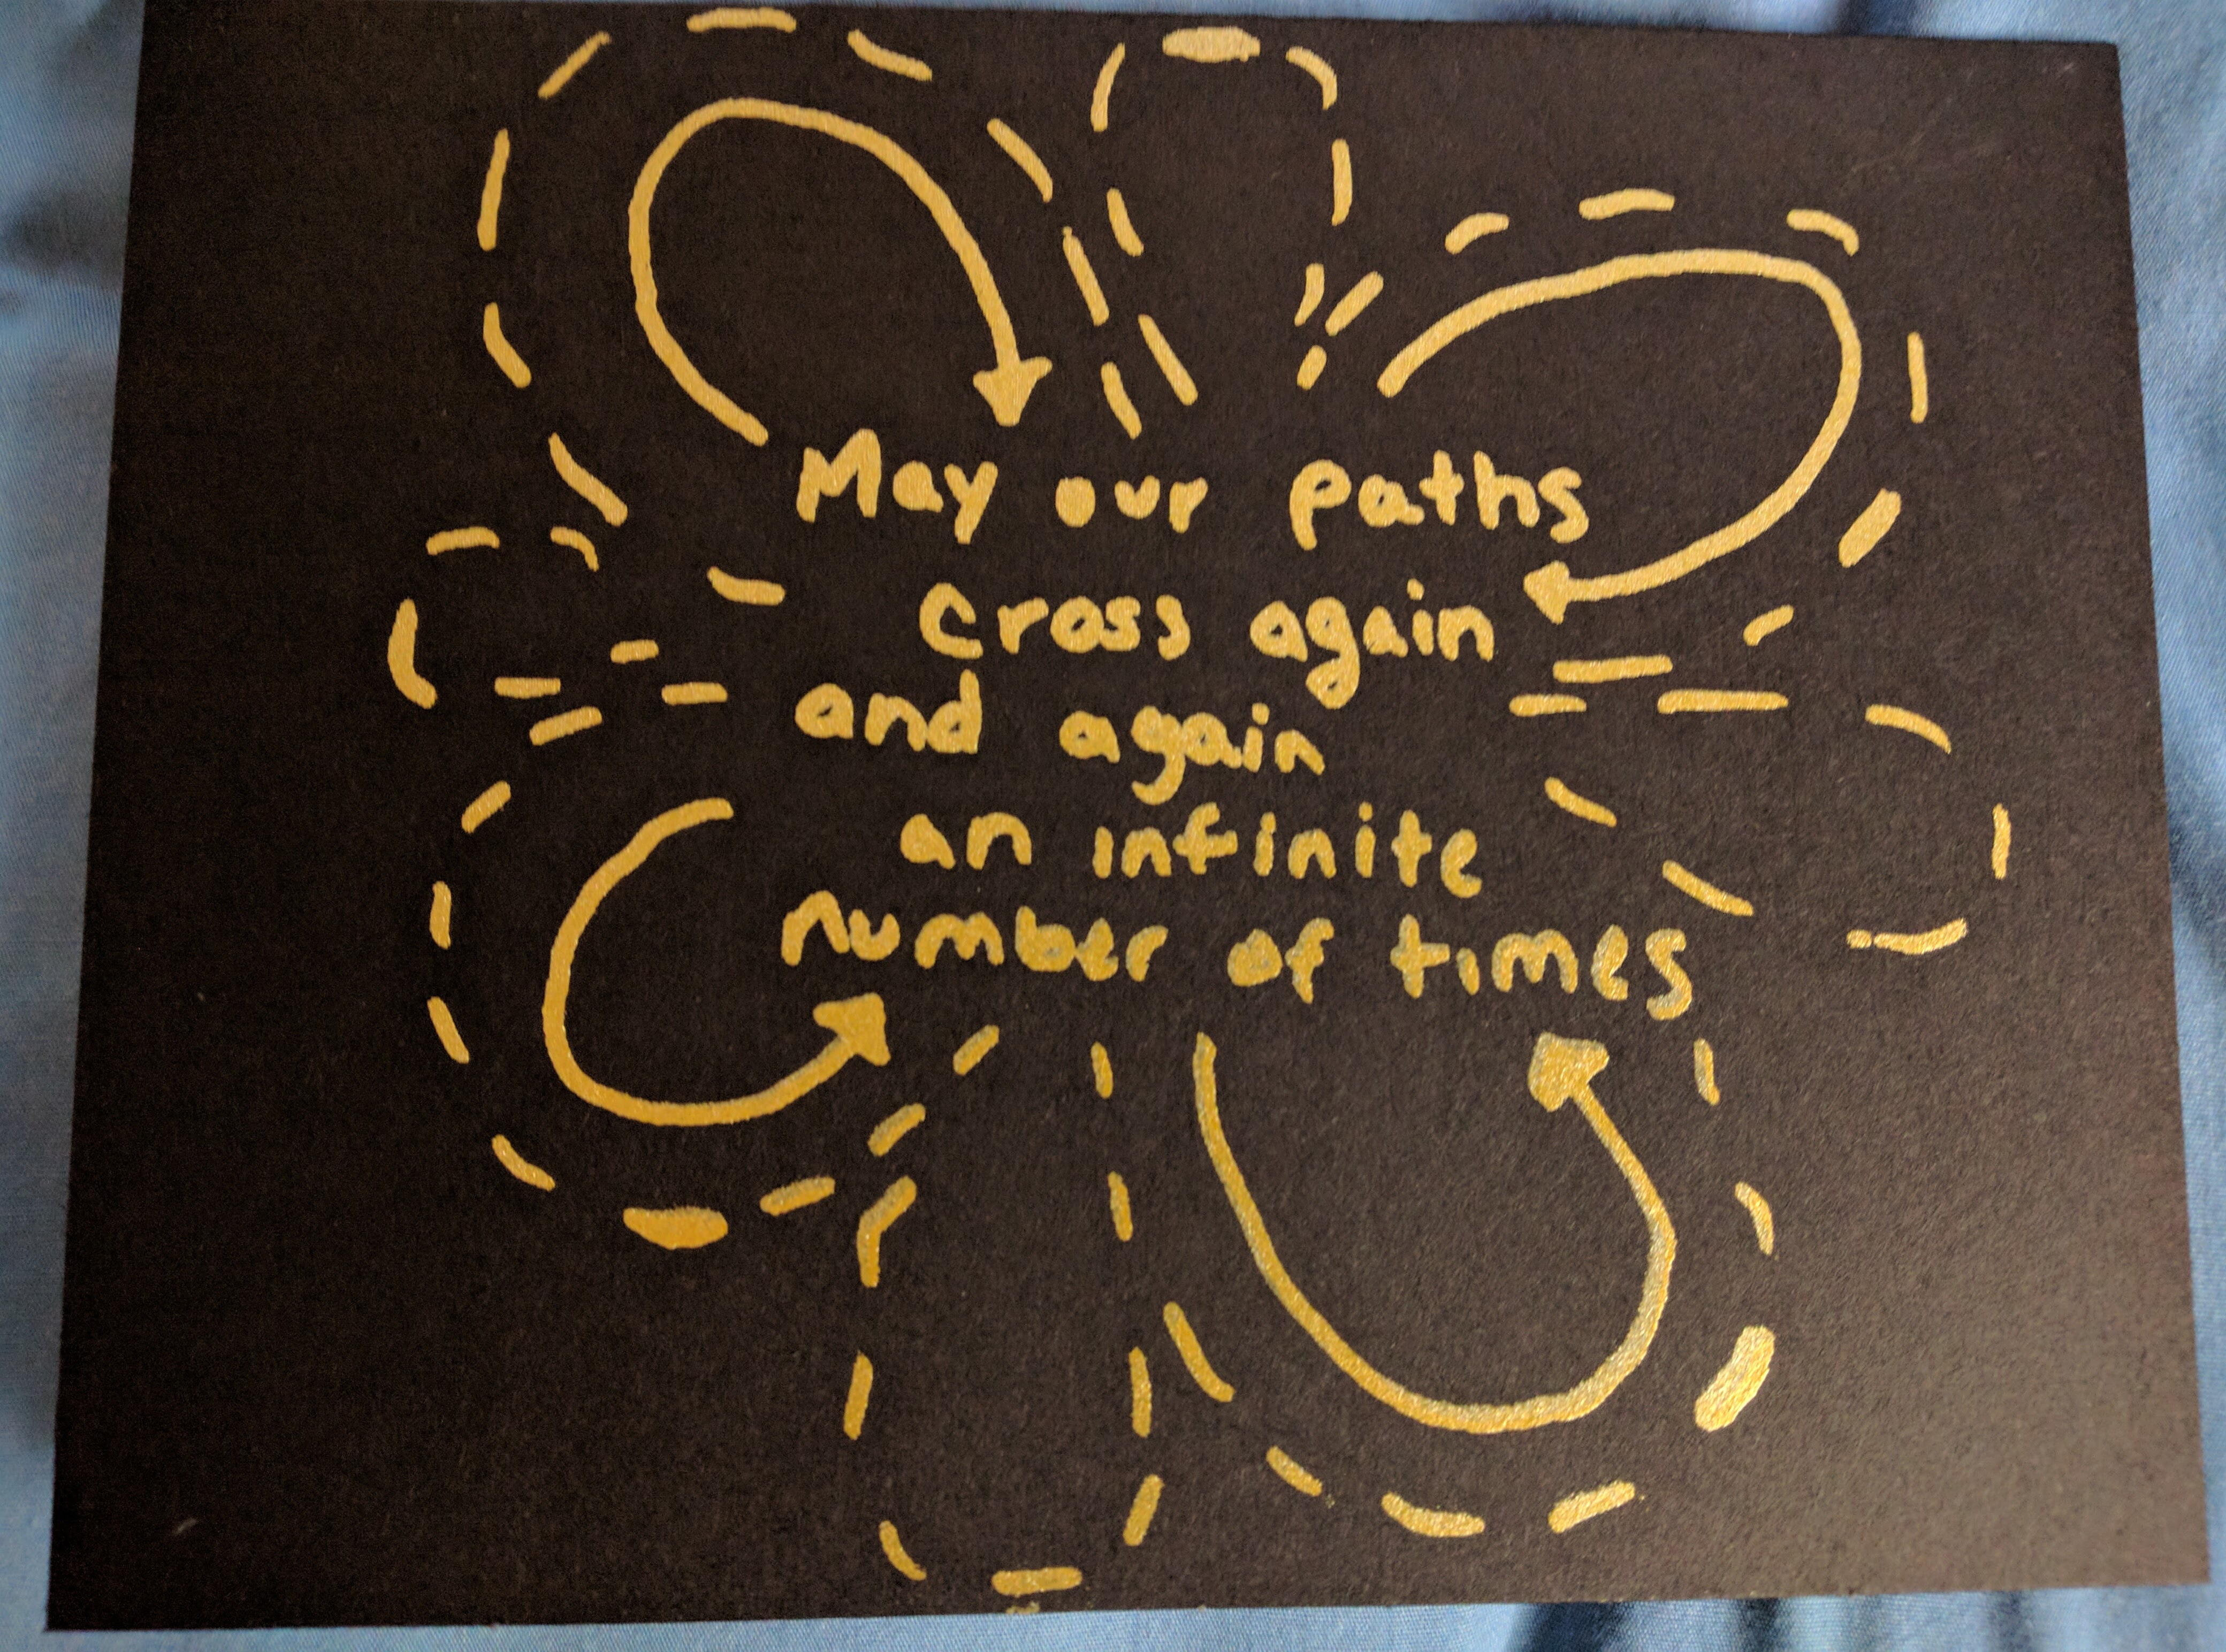 May our paths
cross again
and again
an infinite
number of times